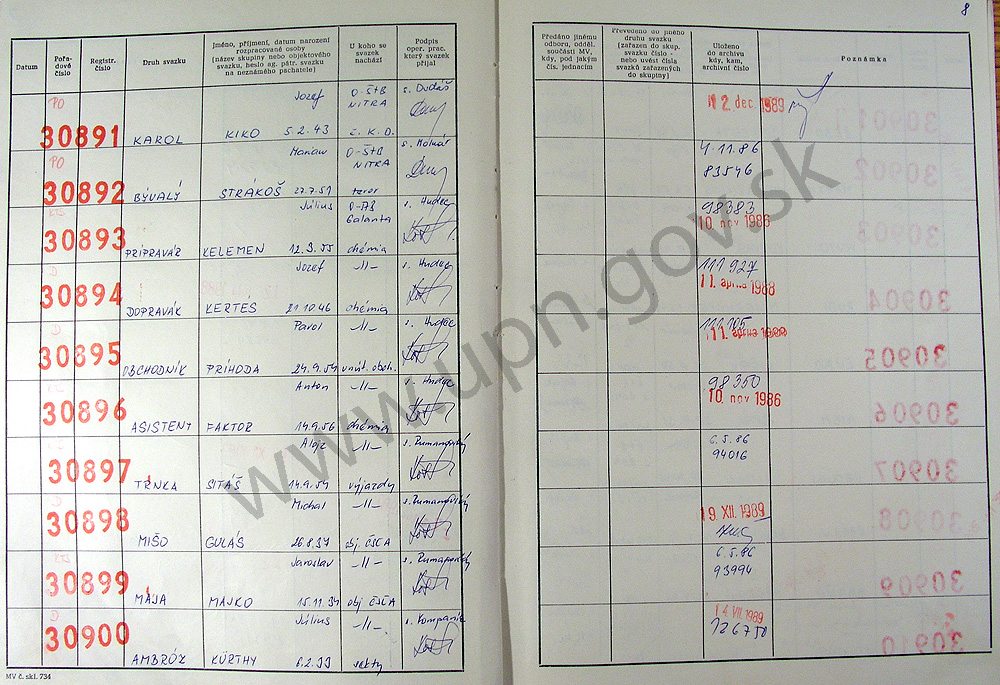 8
Datum
Pořa-
dové
číslo
Registr.
číslo
Druh svazku
Jméno, příjmení, datum narození
rozpracované osoby
(název skupiny nebo objektového
svazku, heslo ag. pátr. svazku
na neznámého pachatele)
U koho se
svazek
nachází
Podpis
oper. prac.
který svazek
přijal
Předáno jinému
odboru, odděl.
součásti MV,
kdy, pod jakým
čís. jednacím
Převedeno do jiného
druhu svazku
(zařazen do skup.
svazku číslo -
nebo uvést čísla
svazků zařazených
do skupiny)
Uloženo
do archivu
kdy, kam,
archivní číslo
Poznámka
PO
30891 KAROL Jozef KIKO 5.2.43 O-ŠtB NITRA č.K.D. s. Dudáš 12 dec. 1989
PO
30892 BÝVALÝ Marian STRÁKOŠ 27.7.51 O-ŠtB NITRA teror s. Molnár 4.11.86 83546
KTS
30893 PRÍPRAVÁR Július KELEMEN 12.9.55 Galanta chémia s. Hudec 98383 10 nov 1986
D
30894 DOPRAVÁK Jozef KERTÉS 21.10.46 -11- chémia s. Hudec 111927 11. apríla 1988
D
30895 OBCHODNÍK Pavol PRÍHODA 24.9.54 -11- s. Hudec 11. apríla 1988
30896 ASISTENT Anton FAKTOR 14.9.56 -11- chémia s. Hudec 98350 10 nov 1986
30897 TŔNKA Alojz SITÁŠ 14.9.54 -11- výjazdy 6.5.86 94016
D
30898 MIŠO Michal GULÁS 26.8.37 -11- obj ČSČA 19 XII. 1989
KTS
30899 MAJA Jaroslav MAJKO 15.11.34 -11- obj ČSČA 6.5.86 93994
D
30900 AMBRÓZ Július KÜRTHY 6.2.33 -11- sekty s. Kompaník 14 VII. 1989 126750
MV č. skl. 734
www.upn.gov.sk